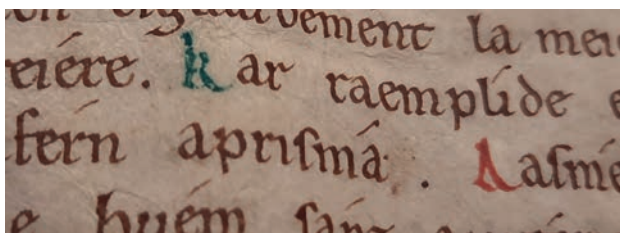 vement la mei
eiére. kar raemplide e
fern aprismá. Lasme
e huém sanz